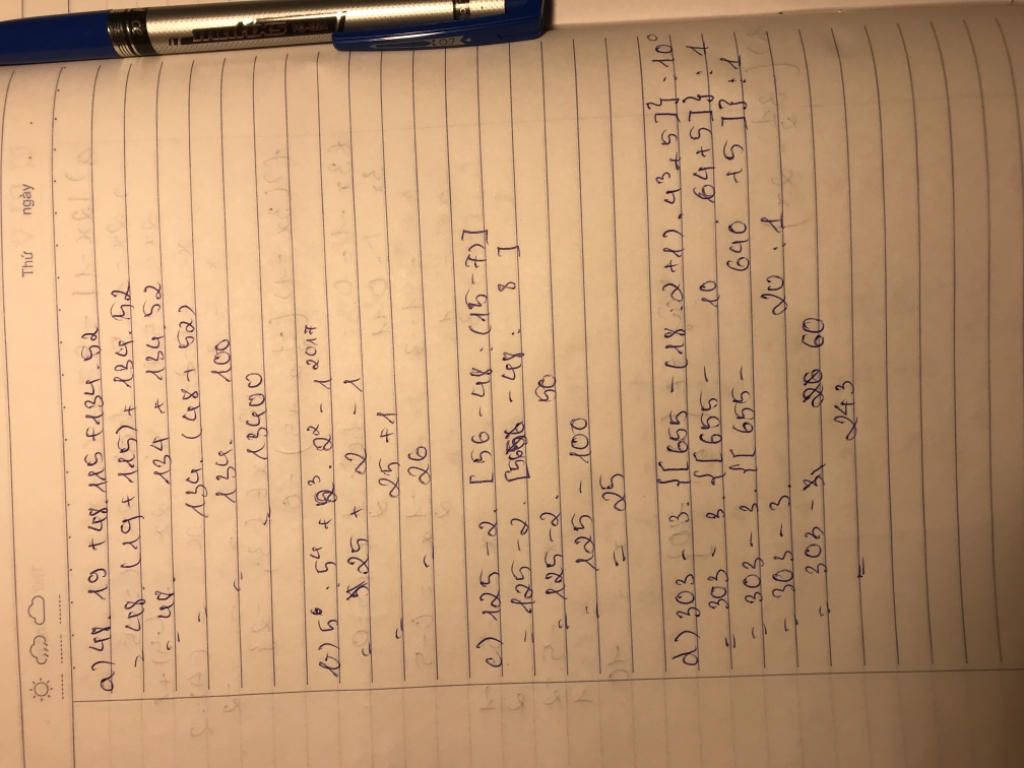 Thứ ngày
a) 48. 19 + 48. 115 + 134. 52
= 48. (19 + 115) + 134. 52
= 48. 134 + 134. 52
= 134. (48 + 52)
= 134. 100
= 13400
b) 5⁶ : 5⁴ + 2³ : 2² - 1²⁰¹⁷
= 25 + 2 - 1
= 25 + 1
= 26
c) 125 - 2. [56 - 48 : (15 - 7)]
= 125 - 2. [56 - 48 : 8 ]
= 125 - 2. 50
= 125 - 100
= 25
d) 303 - 3. {[655 - (18 : 2 + 1). 4³ + 5]} : 10⁰
= 303 - 3. {[655 - 10 . 64 + 5]} : 1
= 303 - 3. {[655 - 640 + 5 ]} : 1
= 303 - 3. 20 : 1
= 303 - 60
= 243